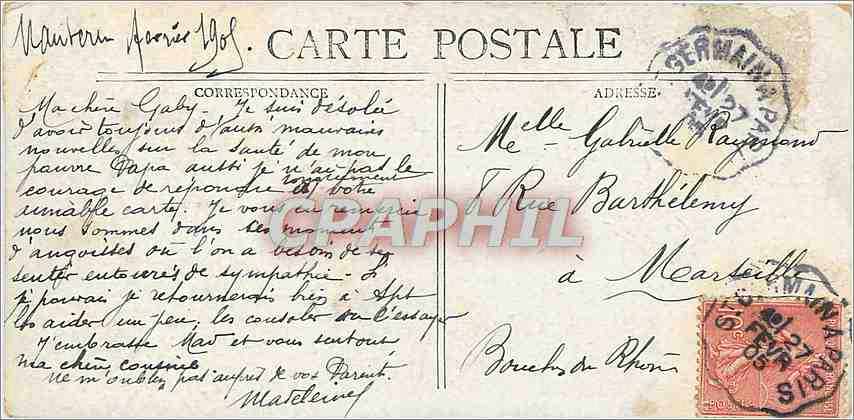 Nanterre février 1905.
CARTE POSTALE
CORRESPONDANCE
Ma chère Gaby - Je suis désolée
d'avoir toujours d'aussi mauvaises
nouvelles sur la santé de mon
pauvre Papa aussi je n'ai pas le
courage de repondre à votre
aimable carte. Je vous en remercie
nous sommes dans ces moments
d'angoisses où l'on a besoin de se
sentir entourés de sympathie - Si
je pouvais je retournerais bien à Apt
les aider un peu, les consoler ou l'essayer
J'embrasse Mad et vous surtout
ma chère cousine
ne m'oubliez pas auprès de vos Parents.
Madeleine
ADRESSE
Melle Gabrielle Raymond
8 Rue Barthélemy
à Marseille
Bouches du Rhône
GERMAIN A PA
27
FEVR
ST GERMAIN A PARIS
27
FEVR
05
10
CRAPHIL